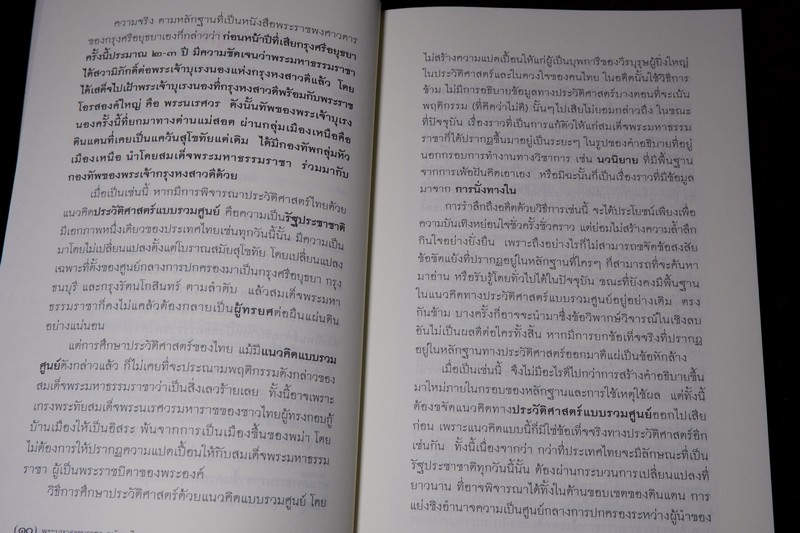 ความจริง ตามหลักฐานที่เป็นหนังสือพระราชพงศาวดาร
ของกรุงศรีอยุธยาเองที่กล่าวว่า ก่อนหน้าปีที่เสียกรุงศรีอยุธยา
ครั้งนี้ประมาณ ๒-๓ ปี มีความชัดเจนว่าพระมหาธรรมราชา
ได้สวามิภักดิ์ต่อพระเจ้าบุเรงนองแห่งกรุงหงสาวดีแล้ว โดย
ได้เสด็จไปเฝ้าพระเจ้าบุเรงนองที่กรุงหงสาวดีพร้อมกับพระราช
โอรสองค์ใหญ่ คือ พระนเรศวร ดังนั้นทัพของพระเจ้าบุเรง
นองครั้งนี้ที่ยกมาทางด่านแม่สอด ผ่านกลุ่มเมืองเหนือคือ
ดินแดนที่เคยเป็นแคว้นสุโขทัยแต่เดิม ได้มีกองทัพกลุ่มหัว
เมืองเหนือ นำโดยสมเด็จพระมหาธรรมราชา ร่วมมากับ
กองทัพของพระเจ้ากรุงหงสาวดีด้วย
เมื่อเป็นเช่นนี้ หากมีการพิจารณาประวัติศาสตร์ไทยด้วย
แนวคิดประวัติศาสตร์แบบรวมศูนย์ คือความเป็นรัฐประชาชาติ
มีเอกภาพหนึ่งเดียวของประเทศไทยเช่นทุกวันนี้นั้น มีความเป็น
มาโดยไม่เปลี่ยนแปลงตั้งแต่โบราณสมัยสุโขทัย โดยเปลี่ยนแปลง
เฉพาะที่ตั้งของศูนย์กลางการปกครองมาเป็นกรุงศรีอยุธยา กรุง
ธนบุรี และกรุงรัตนโกสินทร์ ตามลำดับ แล้วสมเด็จพระมหา
ธรรมราชาก็คงไม่แคล้วต้องกลายเป็นผู้ทรยศต่อผืนแผ่นดิน
อย่างแน่นอน
แต่การศึกษาประวัติศาสตร์ของไทย แม้มีแนวคิดแบบรวม
ศูนย์ดังกล่าวแล้ว ก็ไม่เคยที่จะประณามพฤติกรรมดังกล่าวของ
สมเด็จพระมหาธรรมราชาว่าเป็นสิ่งเลวร้ายเลย ทั้งนี้อาจเพราะ
เกรงพระทัยสมเด็จพระนเรศวรมหาราชของชาวไทยผู้ทรงกอบกู้
บ้านเมืองให้เป็นอิสระ พ้นจากการเป็นเมืองขึ้นของพม่า โดย
ไม่ต้องการให้ปรากฏความแปดเปื้อนให้กับสมเด็จพระมหาธรรม
ราชา ผู้เป็นพระราชบิดาของพระองค์
วิธีการศึกษาประวัติศาสตร์ด้วยแนวคิดแบบรวมศูนย์ โดย
(๑๐)
ไม่สร้างความแปดเปื้อนให้แก่ผู้เป็นบุพการีของวีรบุรุษผู้ยิ่งใหญ่
ในประวัติศาสตร์และในดวงใจของคนไทย ในอดีตนั้นใช้วิธีการ
ข้าม ไม่มีการอธิบายข้อมูลทางประวัติศาสตร์บางตอนที่จะเน้น
พฤติกรรม (ที่คิดว่าไม่ดี) นั้นๆไปเสียไม่ยอมกล่าวถึง ในขณะ
ที่ปัจจุบัน เรื่องราวที่เป็นการแก้ตัวให้แก่สมเด็จพระมหาธรรม
ราชาก็ได้ปรากฏขึ้นมาอยู่เป็นระยะๆ ในรูปของคำอธิบายที่อยู่
นอกกรอบการทำงานทางวิชาการ เช่น นวนิยาย ที่มีพื้นฐาน
จากการเพ้อฝันคิดเอาเอง หรือมิฉะนั้นก็เป็นเรื่องราวที่มีข้อมูล
มาจาก การนั่งทางใน
การรำลึกถึงอดีตด้วยวิธีการเช่นนี้ จะได้ประโยชน์เพียงเพื่อ
ความบันเทิงหย่อนใจชั่วครั้งชั่วคราว แต่ย่อมไม่สร้างความล้ำลึก
กินใจอย่างยั่งยืน เพราะถึงอย่างไรก็ไม่สามารถขจัดข้อสงสัย
ข้อขัดแย้งที่ปรากฏอยู่ในหลักฐานที่ใครๆ ก็สามารถที่จะค้นหา
มาอ่าน หรือรับรู้โดยทั่วไปได้ในปัจจุบัน ขณะที่ยังคงมีพื้นฐาน
ในแนวคิดทางประวัติศาสตร์แบบรวมศูนย์อยู่อย่างเดิม ตรง
กันข้าม บางครั้งก็อาจจะนำมาซึ่งข้อวิพากษ์วิจารณ์ในเชิงลบ
อันไม่เป็นผลดีต่อใครทั้งสิ้น หากมีการยกข้อเท็จจริงที่ปรากฏ
อยู่ในหลักฐานทางประวัติศาสตร์ออกมาตีแผ่เป็นข้อหักล้าง
เมื่อเป็นเช่นนี้ จึงไม่มีอะไรดีไปกว่าการสร้างคำอธิบายขึ้น
มาใหม่ภายในกรอบของหลักฐานและการใช้เหตุใช้ผล แต่ทั้งนี้
ต้องขจัดแนวคิดทางประวัติศาสตร์แบบรวมศูนย์ออกไปเสีย
ก่อน เพราะแนวคิดแบบนี้ก็มิใช่ข้อเท็จจริงทางประวัติศาสตร์อีก
เช่นกัน ทั้งนี้เนื่องจากว่า กว่าที่ประเทศไทยจะมีลักษณะที่เป็น
รัฐประชาชาติทุกวันนี้นั้น ต้องผ่านกระบวนการเปลี่ยนแปลงที่
ยาวนาน ที่อาจพิจารณาได้ทั้งในด้านขอบเขตของดินแดน การ
แย่งชิงอำนาจความเป็นศูนย์กลางการปกครองระหว่างผู้นำของ